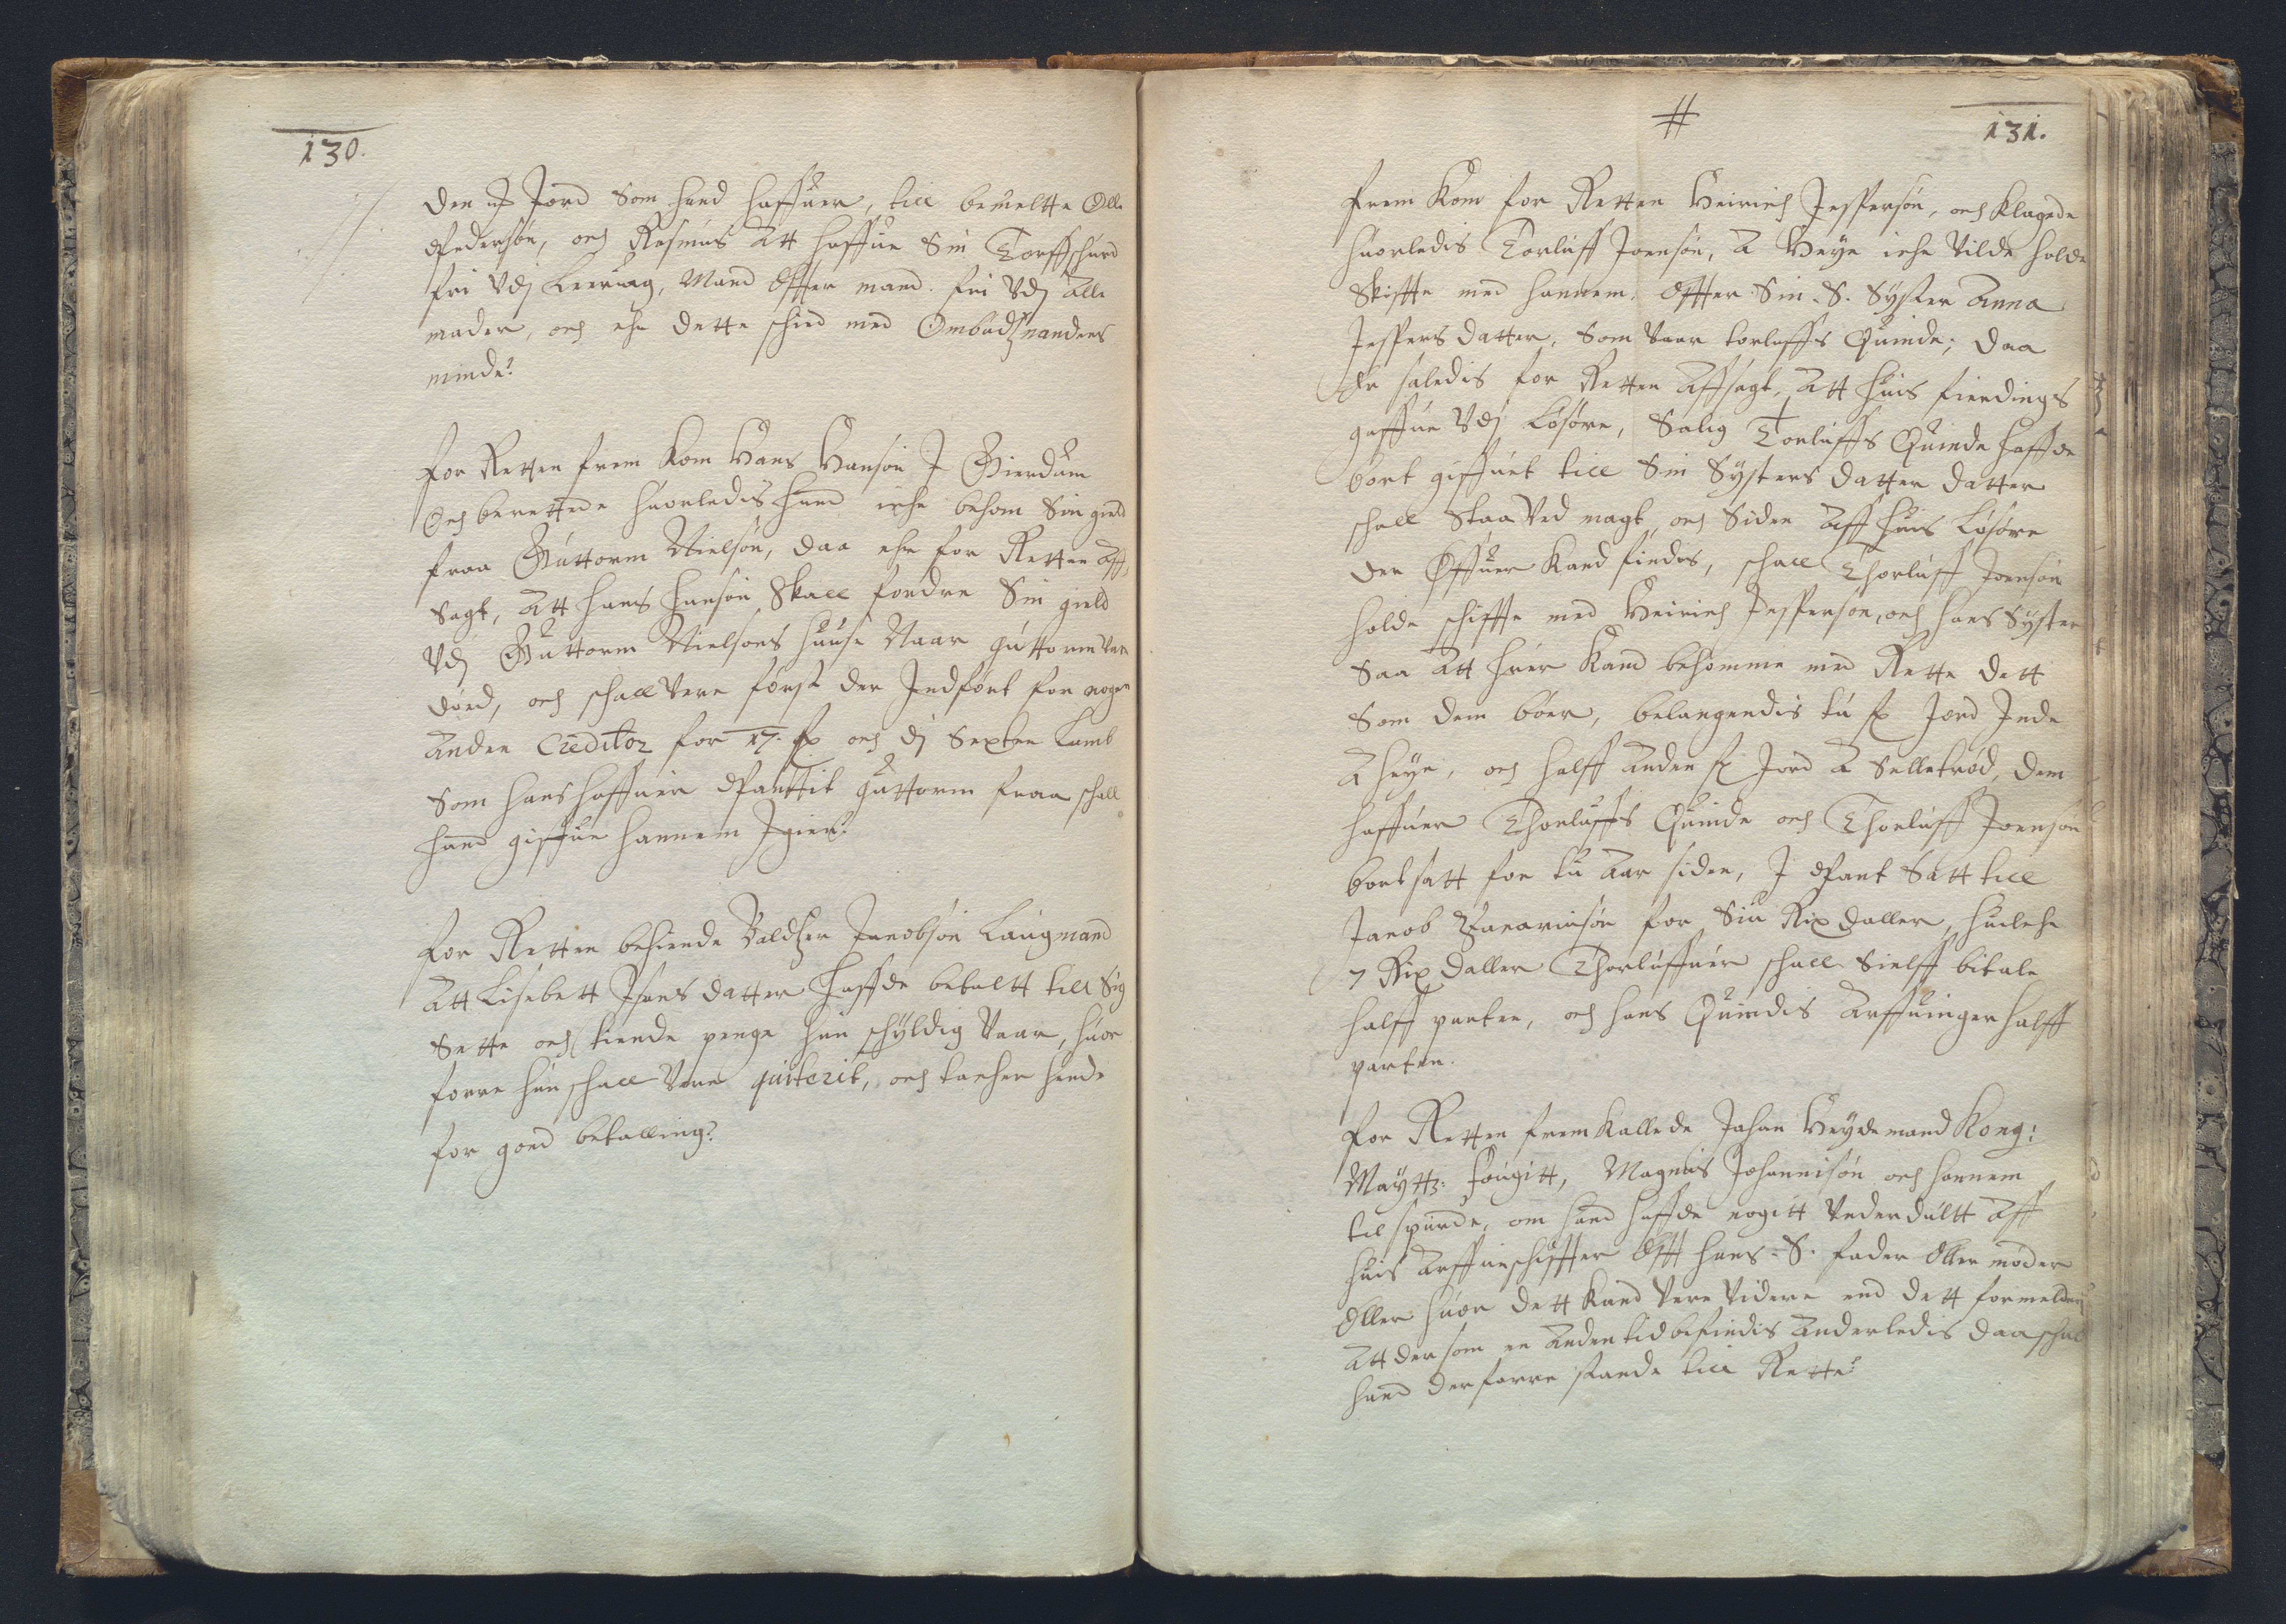 130.
den  Jord Som hand haffuer, till bemeltte Olle
Pedersøn, och Rasmus Att haffue Sin Torffschurd
fri Vdj Leervog, Mand Effter mand. fri Vdj Alle
mader, och ehr dette schied med Ombudzmandens
minde.
For Retten frem Kom Hans Hansøn I Gierdum
Och berettede huorledis hand iche bekom Sin gield
fraa Guttorm Nielsøn, daa ehr for Retten Aff,
Sagt, Att hans hansøn Skall fordre Sin gield
Vdj Guttorm Nielsøns huuse Naar guttorm vere
døed, och schall Vere først der Indført for nogen
Anden Creditor for 17. och dj Sexten Lamb
Som hans haffuer Panttit guttorm fraa schall
hand giffue hannem Igien.
For Retten bekiende Baldzer Jacobsøn Laugmand
Att Lisebett Isachs datter haffde betaltt till Sig
Sette och tiende penge hun schyldig Vaar, huor
forre hun schall Vere quiterit, och tacher hende
for goed betalling.
131.
Frem Kom for Retten Heinrich Jespersøn, och Klagede
huorledis Torluff Joensøn, A Heye iche Vilde holde
Skiffte med hannem, Effter Sin S. Syster Anna
Jespers datter, Som Vaar torluffs Quinde; daa
Er saledis for Retten Affsagt, Att huis fierdings
gaffue Vdj Løsøre, Salig Torluffs Quinde haffde
bort giffuet till Sin Systers datter datter
schall Staa Ved magt, och Siden Aff huis Løsøre
der Offuer Kand findes, schall Thorluff Joensøn
holde schiffte med Heinrich Jespersøn, och hans Syster
Saa Att huer Kand bekomme med Rette dett
Som dem bøer, belangendis tu Jord Inde
A heye, och halff Anden Jord A Selletrød, dem
haffuer Thorluffs Quinde och Thorluff Joensøn
bortsatt for tu Aar siden, I Pant Satt till
Jacob Zacariasøn for Siu Rix daller, huilche
7 Rix daller Thorluffuer schall Sielff bitale
halff parten, och hans Quindis Arffuinger halff
parten.
For Retten frem Kallede Johan Heydemand Kong:
Maytt: fougitt, Magnus Johannisøn och hannem
til spurde, om hand haffde nogitt Vnderdultt Aff
huis Arffueschiffter Efft hans S. fader Eller moder
Eller huor dett Kand Vere Videre end dett formelder,
Att dersom en Anden tid befindis Anderledis daa schal
hand derforre stande till Rette.